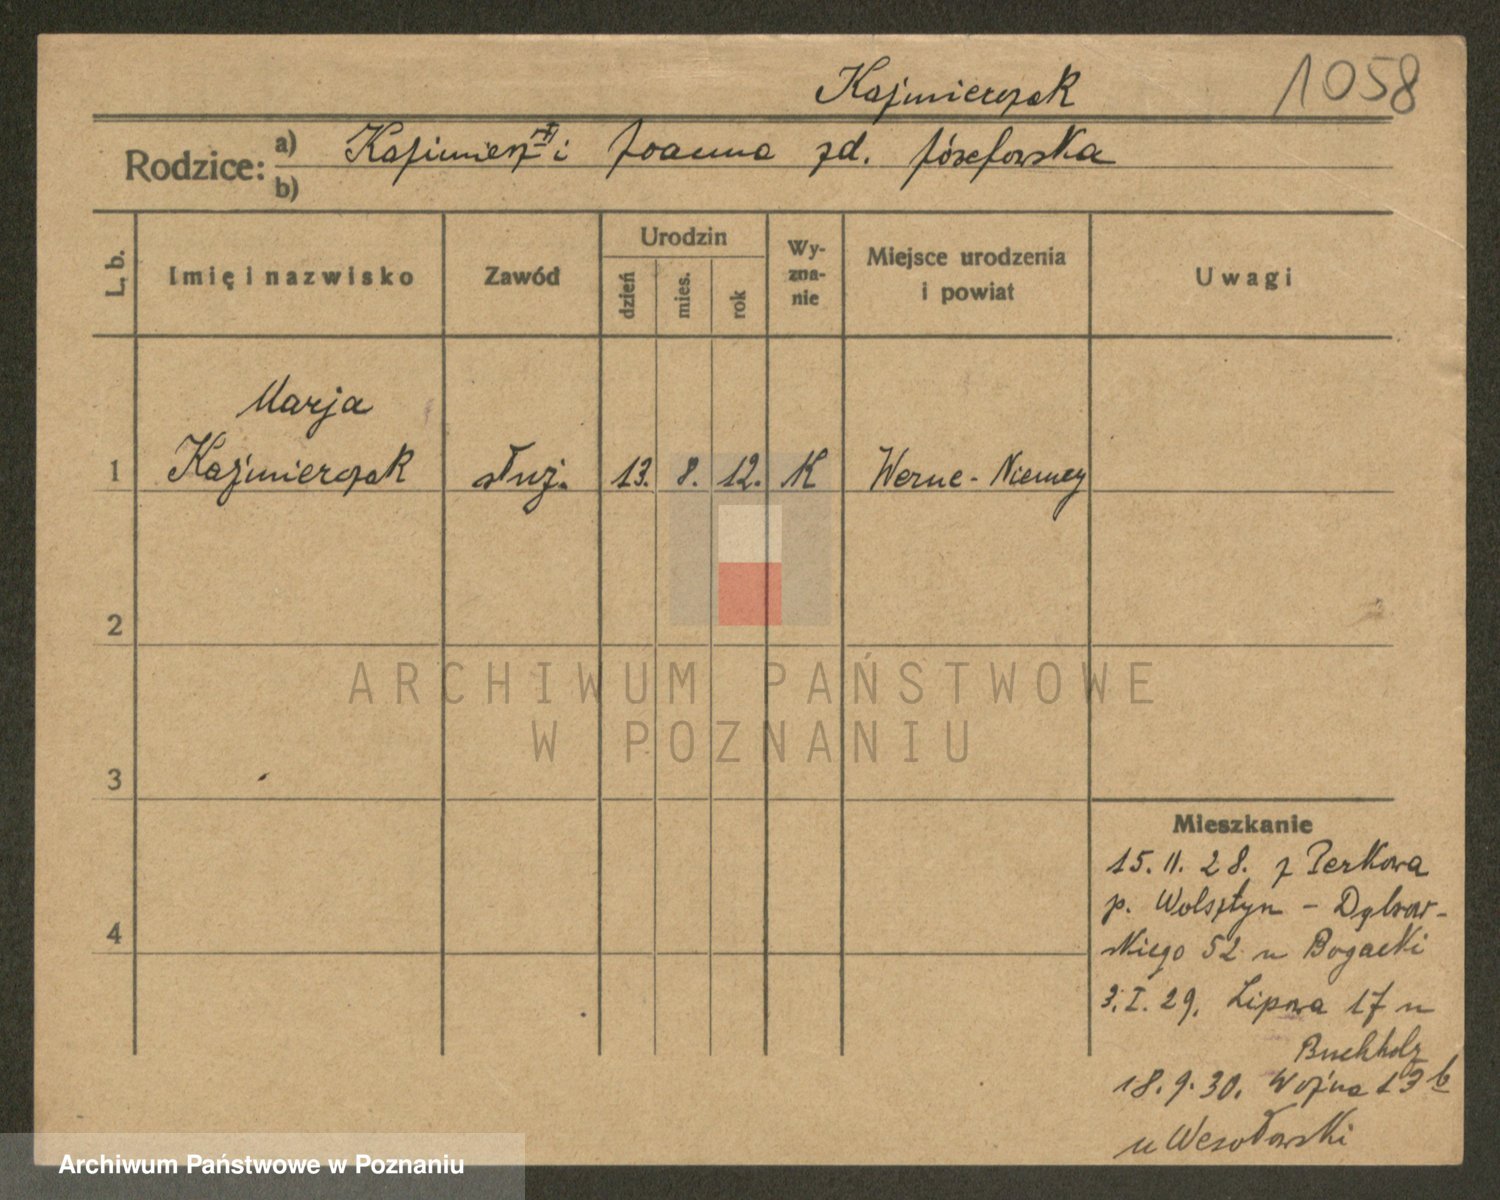 Kaźmierczak 1058
Rodzice: a) Kazimierz i Joanna zd. Józefowska
b)
L. b. Imię i nazwisko Zawód Urodzin dzień mies. rok Wy-zna-nie Miejsce urodzenia i powiat Uwagi
Marja
1 Kaźmierczak służ. 13. 8. 12. K Werne - Niemcy
2
ARCHIWUM PAŃSTWOWE
W POZNANIU
3
Mieszkanie
15. 11. 28. z Perkowa
p. Wolsztyn - Dąbrow-
4
skiego 52 u Bogacki
3. I. 29. Lipowa 17 u
Buchholz
18. 9. 30. Woźna 13 b
u Wesołowski
Archiwum Państwowe w Poznaniu